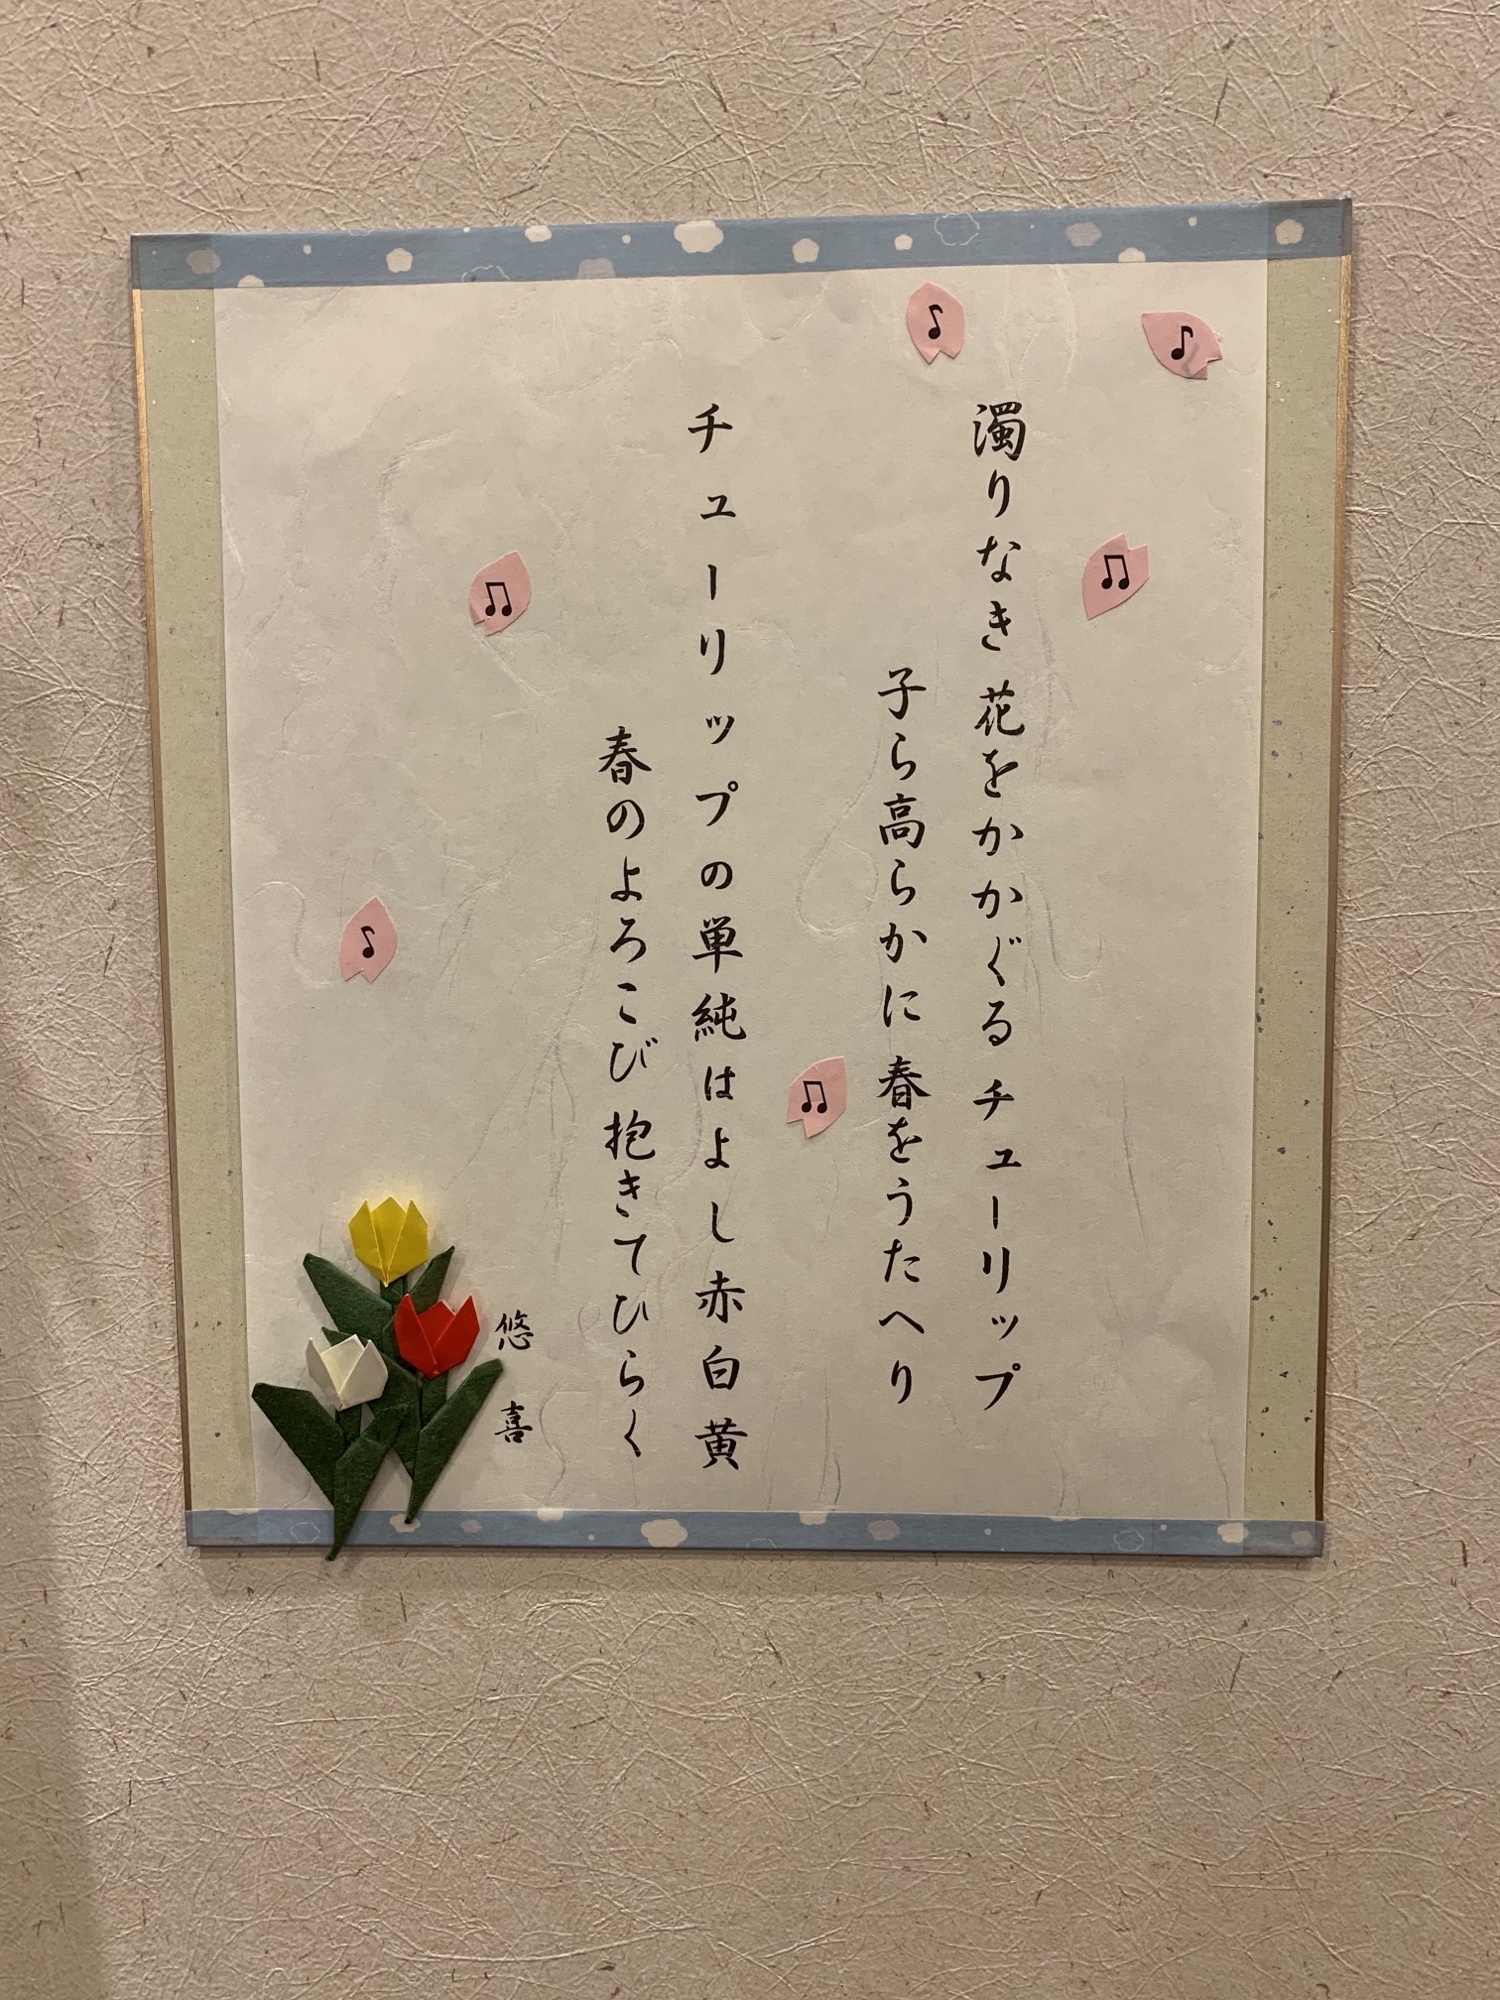 濁りなき花をかかぐるチューリップ
子ら高らかに春をうたへり
チューリップの単純はよし赤白黄
春のよろこび抱きてひらく
悠喜